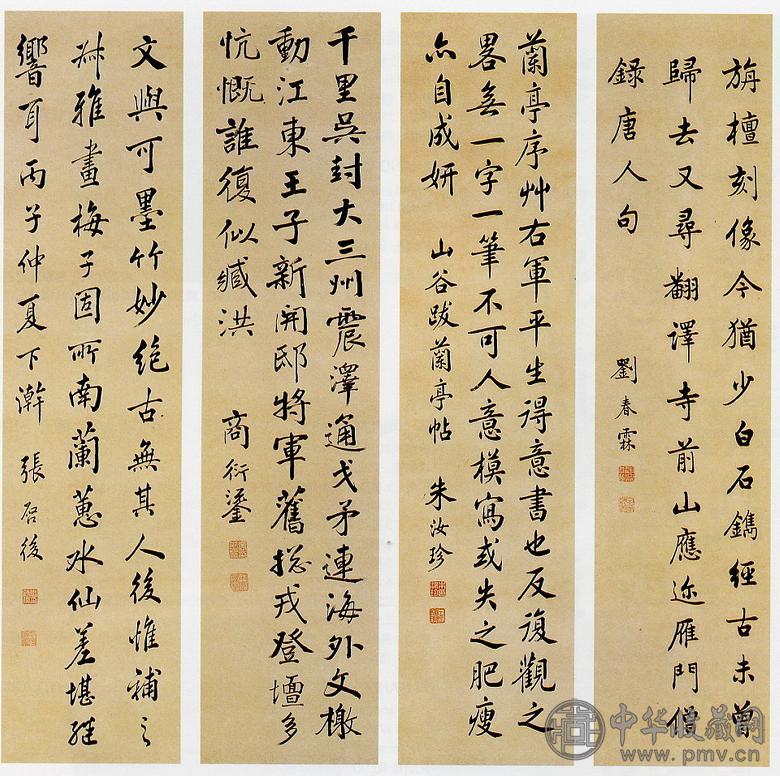 旃檀刻像今猶少白石鐫經古未曾
歸去又尋翻譯寺前山應迩雁門僧
録唐人句
劉春霖
蘭亭序艸右軍平生得意書也反復觀之
畧無一字一筆不可人意模寫或失之肥瘦
亦自成妍 山谷跋蘭亭帖
朱汝珍
千里吳封大三州震澤通戈矛連海外文檄
動江東王子新開邸將軍舊揔戎登壇多
忼慨誰復似臧洪
商衍鎏
文與可墨竹妙絶古無其人後惟補之
艸雅畫梅子固所南蘭蕙水仙差堪繼
響耳丙子仲夏下澣 張启後
中华收藏网
www.pmv.cn